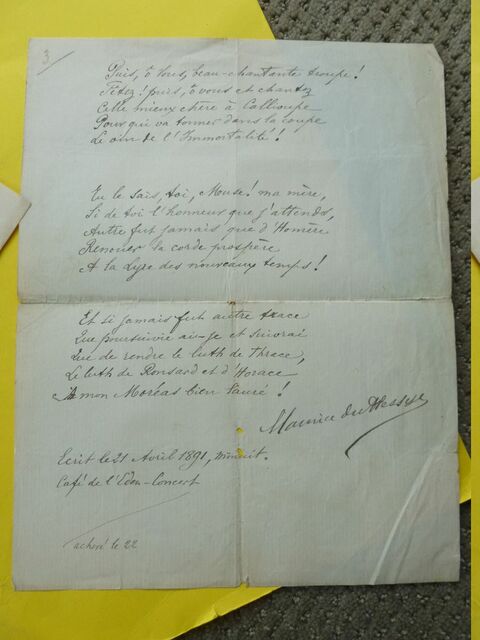 3
Puis, ô vous, beau-chantante troupe!
Fêtez! puis, ô vous et chantez
Celle mieux chère à Callioupe
Pour qui va tonner dans la coupe
Le vin de l'Immortalité!
Tu le sais, toi, Muse! ma mère,
Si de toi l'honneur que j'attends,
Autre fut jamais que d'Homère
Renouer la corde prospère
A la Lyre des nouveaux temps!
Et si jamais fut autre trace
Que poursuivie ai-je et suivrai
Que de rendre le luth de Thrace,
Le luth de Ronsard et d'Horace,
A mon Moréas bien lauré!
Maurice du Plessys
Ecrit le 21 Avril 1891, minuit.
Café de l'Eden-Concert
achevé le 22